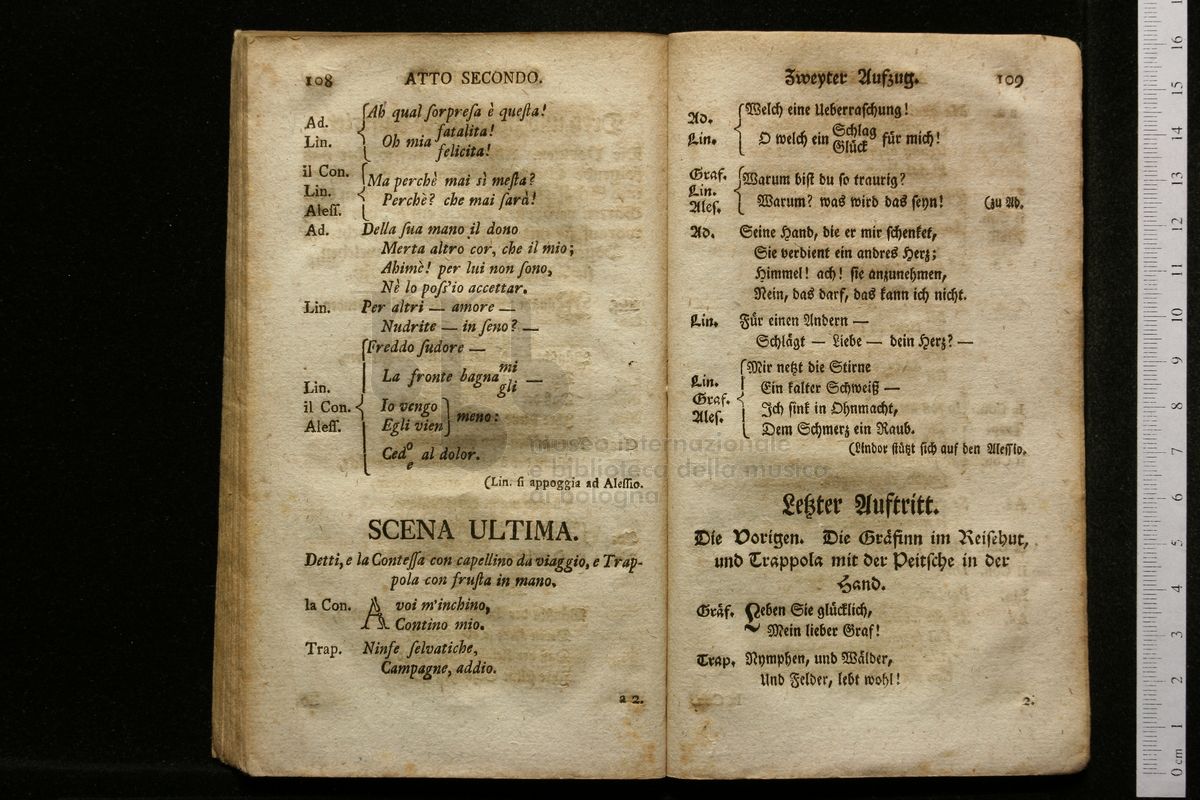 108 ATTO SECONDO.
Ad.
Lin.
Ah qual ſorpreſa è queſta!
Oh mia fatalita!
felicita!
il Con.
Lin.
Aleſſ.
Ma perchè mai sì meſta?
Perchè? che mai ſarà!
Ad. Della ſua mano il dono
Merta altro cor, che il mio;
Ahimè! per lui non ſono,
Nè lo poſſ'io accettar.
Lin. Per altri — amore —
Nudrite — in ſeno? —
Lin.
il Con.
Aleſſ.
Freddo ſudore —
La fronte bagna mi —
gli
Io vengo
Egli vien
meno:
Cedo al dolor.
e
(Lin. ſi appoggia ad Aleſſio.
SCENA ULTIMA.
Detti, e la Conteſſa con capellino da viaggio, e Trap-
pola con fruſta in mano.
la Con. A voi m'inchino,
Contino mio.
Trap. Ninfe ſelvatiche,
Campagne, addio.
a 2.
Zweyter Aufzug. 109
Ad.
Lin.
Welch eine Ueberraſchung!
O welch ein Schlag für mich!
Glück
Graf.
Lin.
Aleſ.
Warum biſt du ſo traurig?
Warum? was wird das ſeyn! (zu Ad.
Ad. Seine Hand, die er mir ſchenket,
Sie verdient ein andres Herz;
Himmel! ach! ſie anzunehmen,
Nein, das darf, das kann ich nicht.
Lin. Für einen Andern —
Schlägt — Liebe — dein Herz? —
Lin.
Graf.
Aleſ.
Mir netzt die Stirne
Ein kalter Schweiß —
Ich ſink in Ohnmacht,
Dem Schmerz ein Raub.
(Lindor ſtützt ſich auf den Aleſſio.
Letzter Auftritt.
Die Vorigen. Die Gräfinn im Reiſehut,
und Trappola mit der Peitſche in der
Hand.
Gräf. Leben Sie glücklich,
Mein lieber Graf!
Trap. Nymphen, und Wälder,
Und Felder, lebt wohl!
2.
museo internazionale
e biblioteca della musica
di bologna
0 cm 1 2 3 4 5 6 7 8 9 10 11 12 13 14 15 16